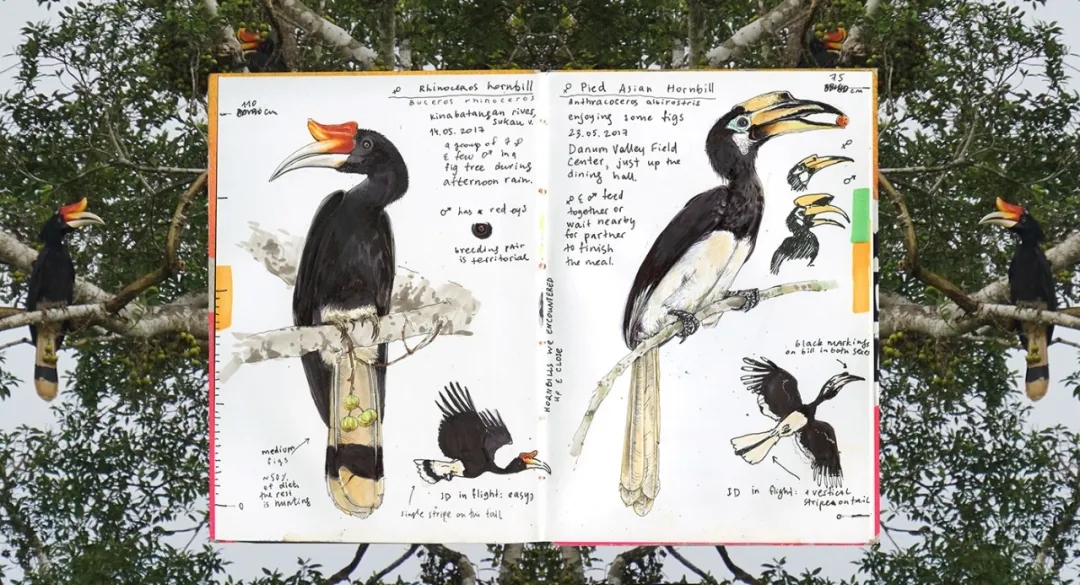 ♀ Rhinoceros hornbill
Buceros rhinoceros
Kinabatangan river,
Sukau v.
14.05.2017
a group of 7 ♀
& few ♂ in a
fig tree during
afternoon rain.
♂ has a red eye
breeding pair
is territorial
110
cm
medium
figs
~50%
of diet,
the rest
is hunting
0
ID in flight: easy
single stripe on the tail
HORNBILLS WE ENCOUNTERED
UP & CLOSE
♀ Pied Asian Hornbill
Anthracoceros albirostris
enjoying some figs
23.05.2017
Danum Valley Field
Center, just up the
dining hall.
♀ & ♂ feed
together or
wait nearby
for partner
to finish
the meal.
75
cm
♀
♂
black markings
on bill in both sexes
ID in flight: 2 vertical
stripes on tail
0